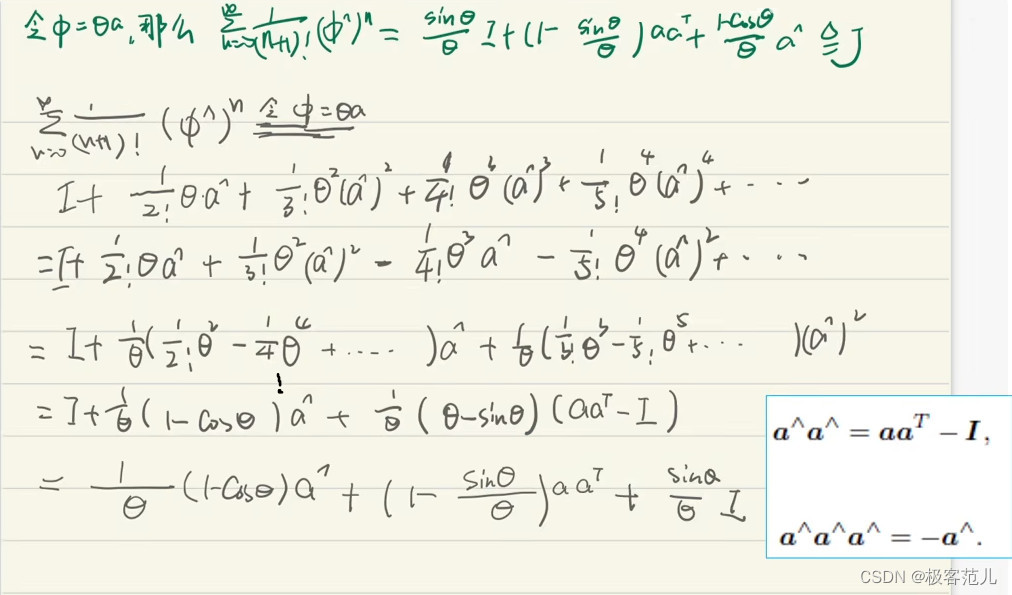 令φ=θa,那么 ∑_{n=0}^{∞} 1/(n+1)! (φ^)^n = sinθ/θ I+(1- sinθ/θ)aa^T+ 1-cosθ/θ a^ ≜J
∑_{n=0}^{∞} 1/(n+1)! (φ^)^n 令φ=θa
I+ 1/2! θ·a^+ 1/3! θ^2(a^)^2+ 1/4! θ^3(a^)^3+ 1/5! θ^4(a^)^4+ ···
=I+ 1/2! θa^ + 1/3! θ^2(a^)^2 - 1/4! θ^3 a^ - 1/5! θ^4(a^)^2+ ···
= I+ 1/θ(1/2! θ^2 - 1/4! θ^4 + ···· )a^ + 1/θ(1/3! θ^3 - 1/5! θ^5+··· )(a^)^2
= I+ 1/θ(1-cosθ)a^ + 1/θ(θ-sinθ)(aa^T-I)
= 1/θ (1-cosθ)a^ + (1- sinθ/θ)aa^T + sinθ/θ I
a^a^ = aa^T − I,
a^a^a^ = −a^.
CSDN @极客范儿